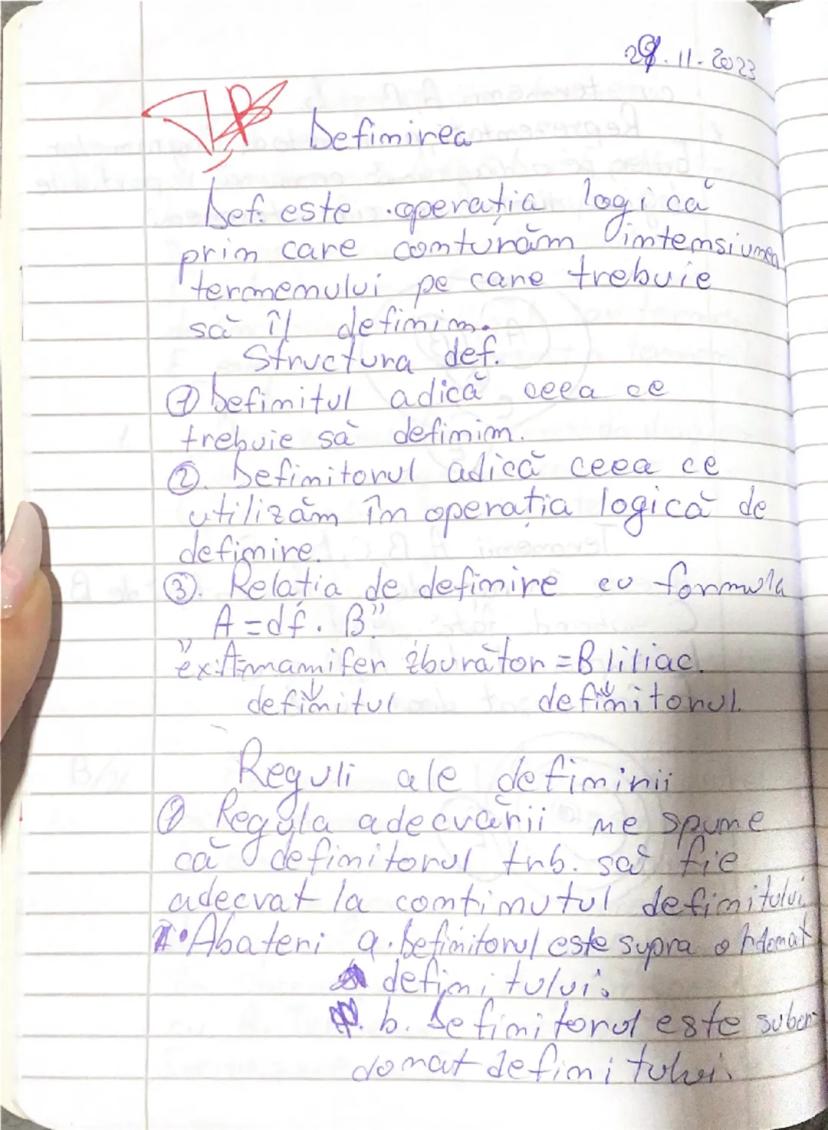 29.11.2023
Definirea
Def. este operația logică
prin care conturăm intensiunea
termenului pe care trebuie
să îl definim.
Structura def.
① Definitul adică ceea ce
trebuie să definim.
②. Definitorul adică ceea ce
utilizăm în operația logică de
definire.
③. Relația de definire cu formula
A = df. B"
"ex: A=mamifer zburător = B liliac.
definitul definitorul.
Reguli ale definirii
① Regula adecvării ne spune
că definitorul trb. să fie
adecvat la conținutul definitului
1. Abateri a. Definitorul este supra ordonat
definitului.
b. Definitorul este subor
donat definitului.